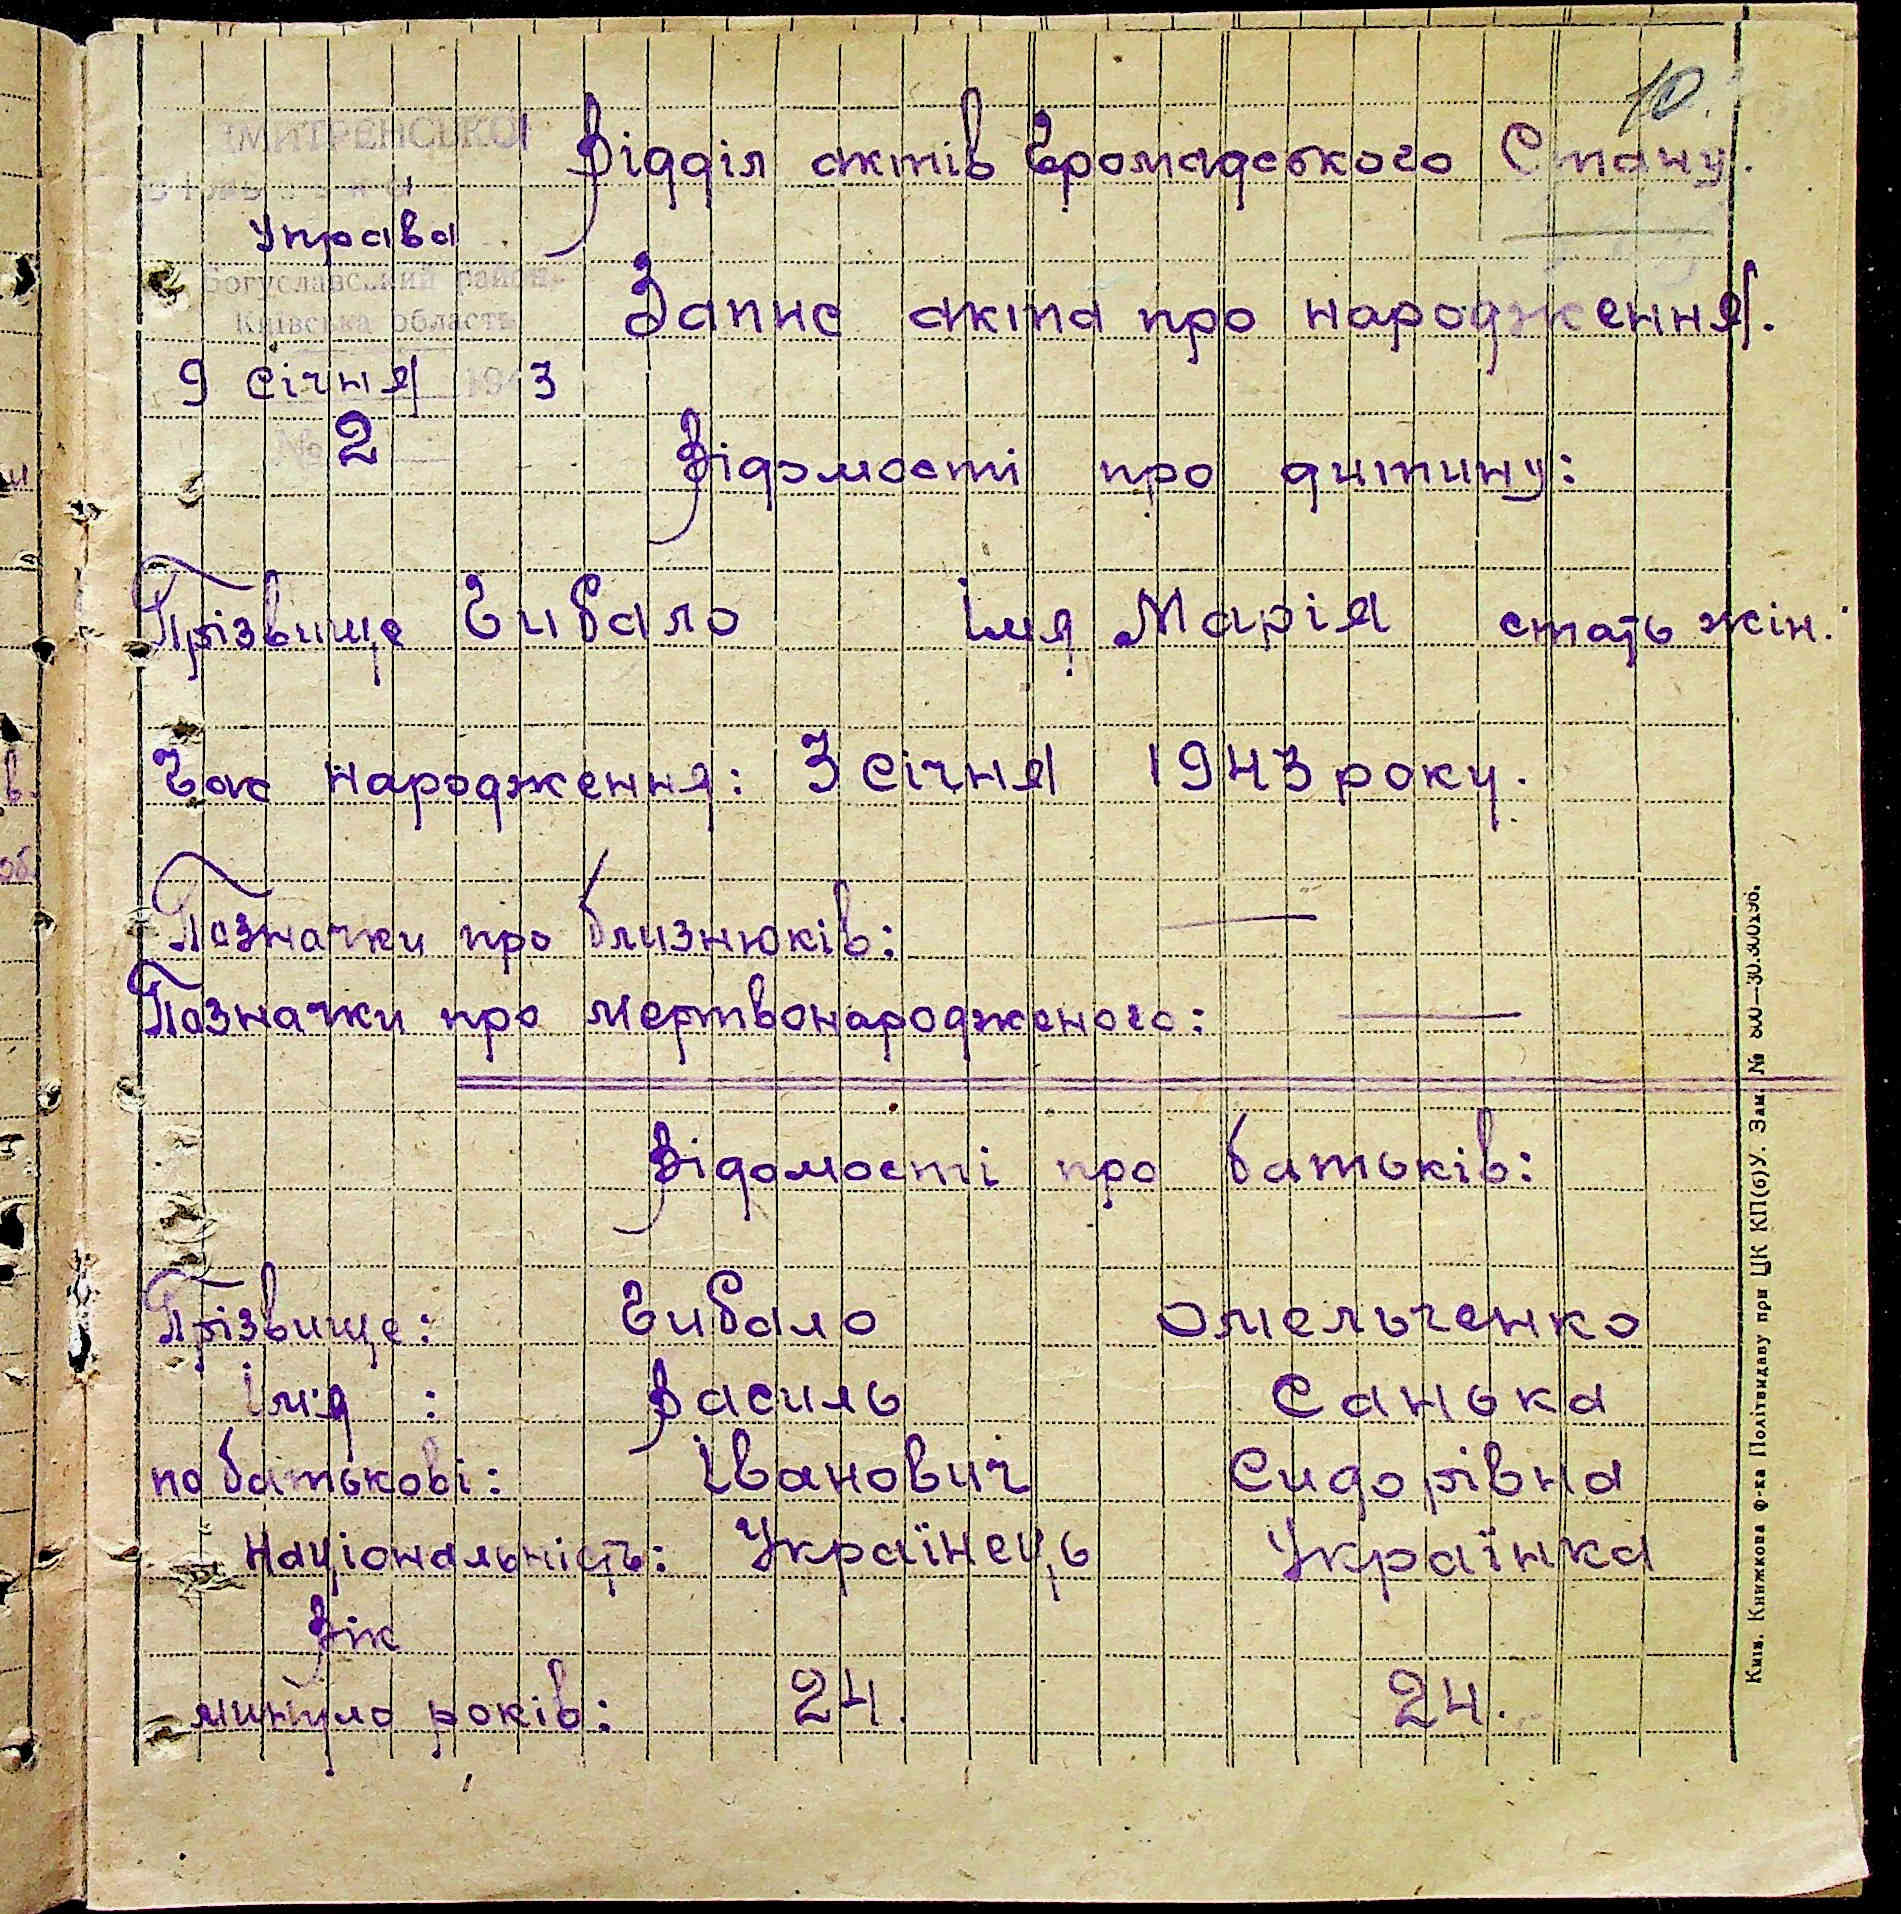 10.
МИТРЕНСЬКОЇ
Відділ актів Громадського Стану.
Управа
Богуславський район
Київська область
Запис акта про народження.
9 січня 1943
№ 2
Відомості про дитину:
Прізвище Чибало імя Марія стать жін.
Час народження: 3 січня 1943 року.
Позначки про близнюків: —
Позначки про мертвонародженого: —
Відомості про батьків:
Прізвище: Чибало Омельченко
ім'я : Василь Санька
по батькові: Іванович Сидорівна
Національність: Українець Українка
Вік
минуло років: 24. 24.
Київ. Книжкова ф-ка Політвидаву при ЦК КП(б)У. Зам. № 800—30.300198.